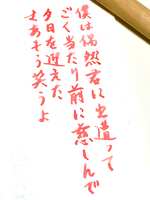 僕は偶然君に出遭って
ごく当たり前に慈しんで
夕日を迎えた
さあそう笑うよ